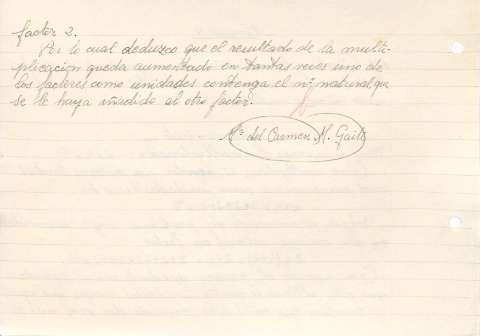 factor 2.
Por lo cual deduzco que el resultado de la multi-
plicación queda aumentado en tantas veces uno de
los factores como unidades contenga el nº natural que
se le haya añadido al otro factor.
Mª del Carmen M. Gaite